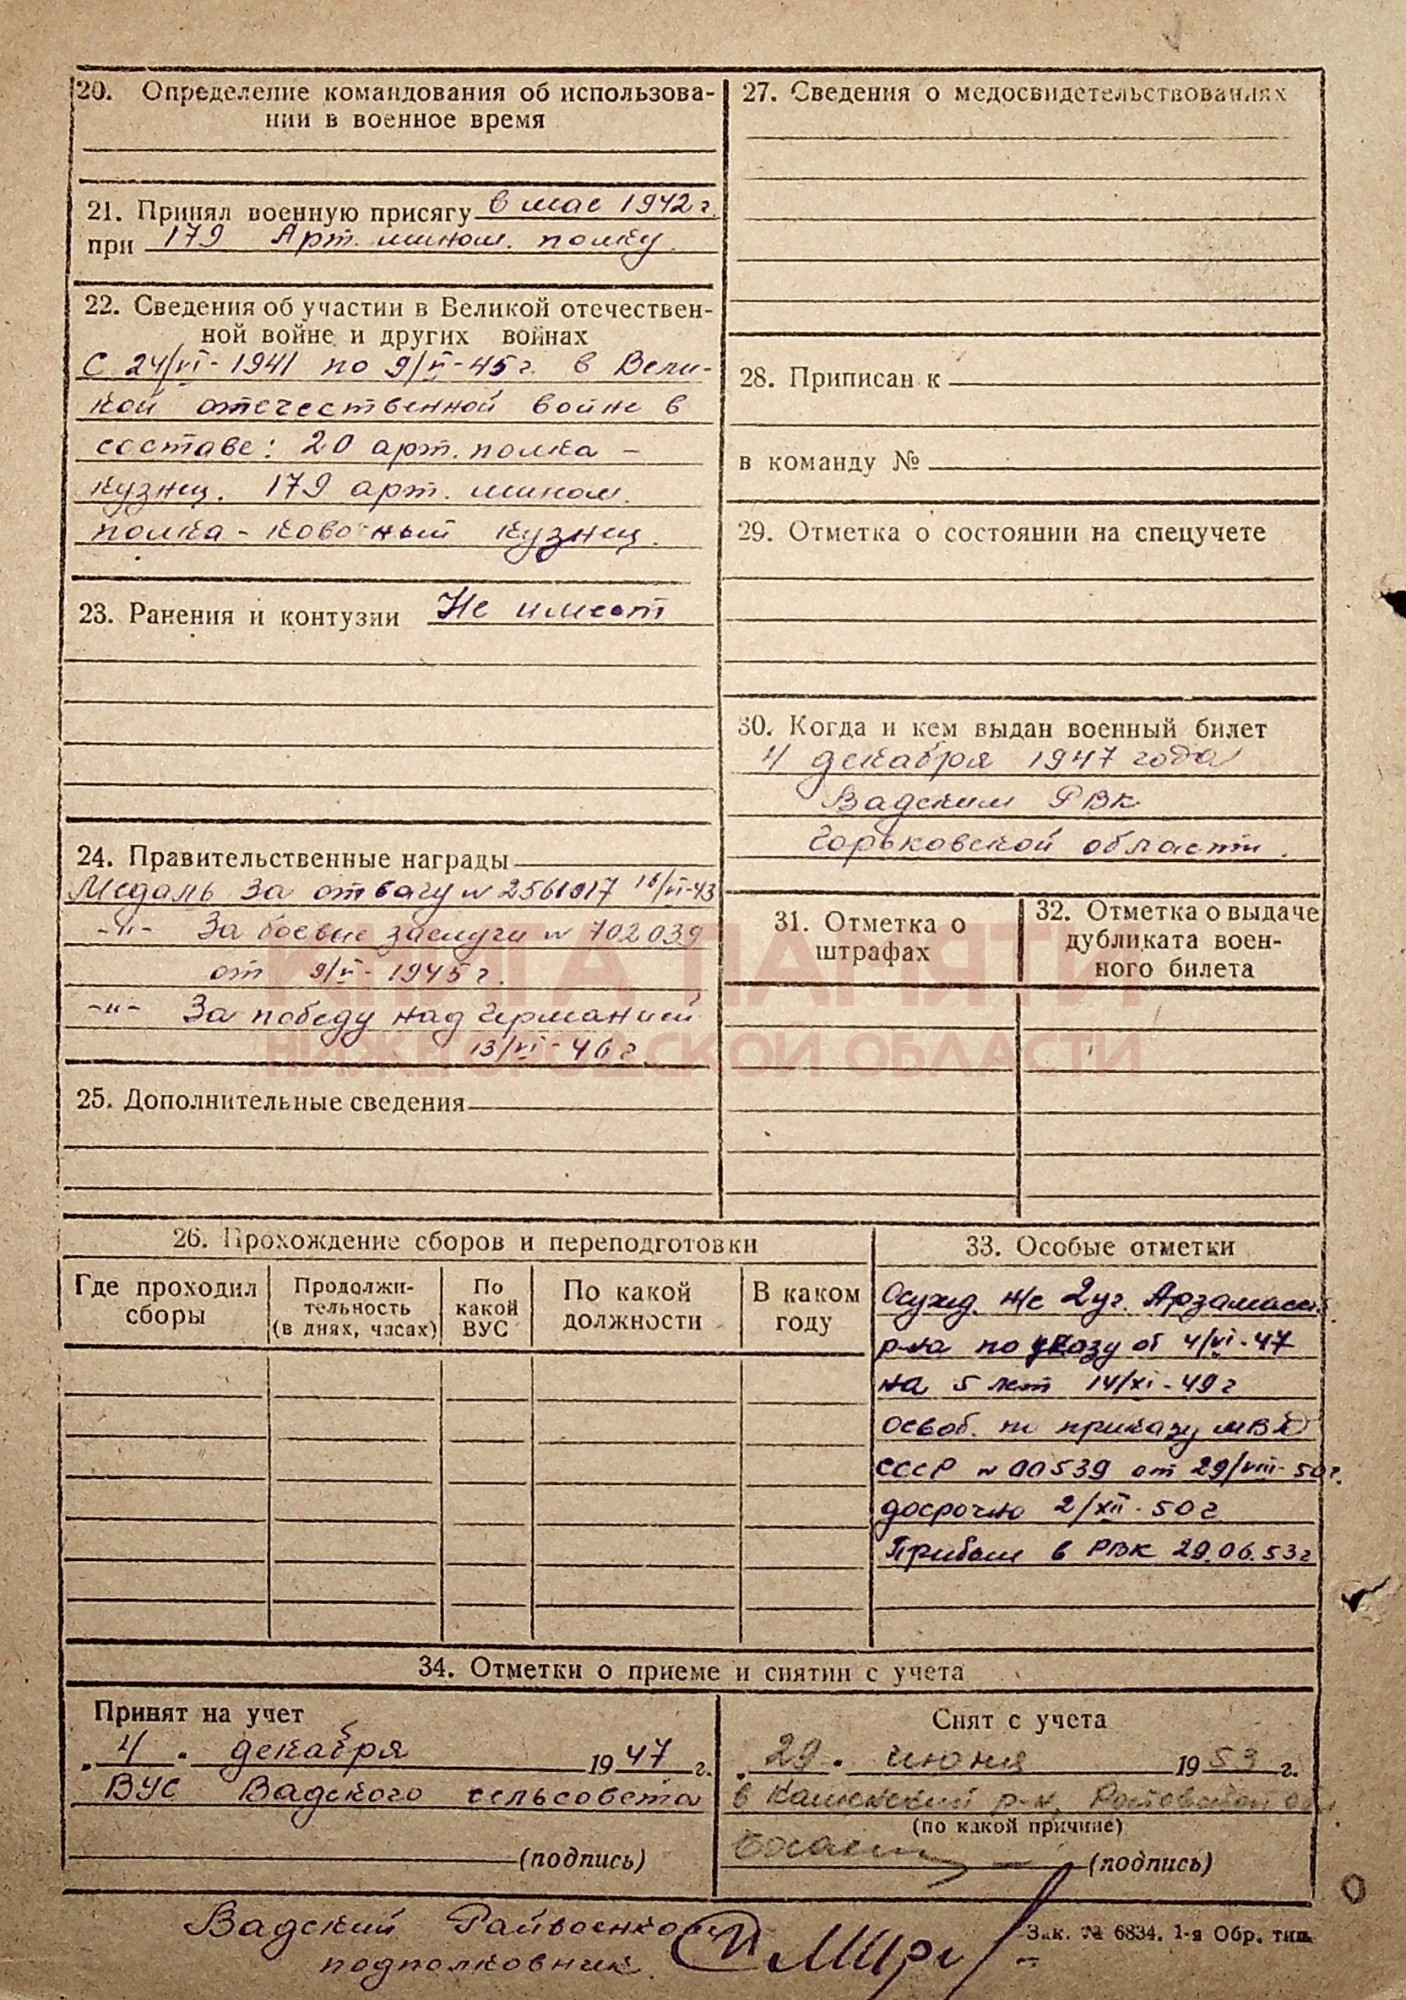 20. Определение командования об использова-
нии в военное время
21. Принял военную присягу в мае 1942 г.
при 179 Арт. мином. полку
22. Сведения об участии в Великой отечествен-
ной войне и других войнах
С 24/VI-1941 по 9/V-45 г. в Вели-
кой отечественной войне в
составе: 20 арт. полка -
кузнец. 179 арт. мином.
полка - ковочный кузнец.
23. Ранения и контузии Не имеет
24. Правительственные награды
Медаль За отвагу № 2561017 16/VI-43
-"- За боевые заслуги № 702039
от 9/V-1945 г.
-"- За победу над Германией
13/VI-46 г.
25. Дополнительные сведения
27. Сведения о медосвидетельствованиях
28. Приписан к
в команду №
29. Отметка о состоянии на спецучете
30. Когда и кем выдан военный билет
4 декабря 1947 года
Вадским РВК
Горьковской области.
31. Отметка о
штрафах
32. Отметка о выдаче
дубликата воен-
ного билета
КНИГА ПАМЯТИ
НИЖЕГОРОДСКОЙ ОБЛАСТИ
26. Прохождение сборов и переподготовки
Где проходил
сборы
Продолжи-
тельность
(в днях, часах)
По
какой
ВУС
По какой
должности
В каком
году
33. Особые отметки
Осужд. н/с 2 уч. Арзамасск.
р-на по указу от 4/VI-47
на 5 лет 14/XI-49 г
освоб. по приказу МВД
СССР № 00539 от 29/VIII-50 г.
досрочно 2/XII-50 г
Прибыл в РВК 29.06.53 г
34. Отметки о приеме и снятии с учета
Принят на учет
4 декабря 1947 г.
ВУС Вадского сельсовета
(подпись)
Снят с учета
29 июня 1953 г.
в Каменский р-н, Ростовской обл
(по какой причине)
(подпись)
Вадский Райвоенком
подполковник
Зак. № 6834. 1-я Обр. тип.